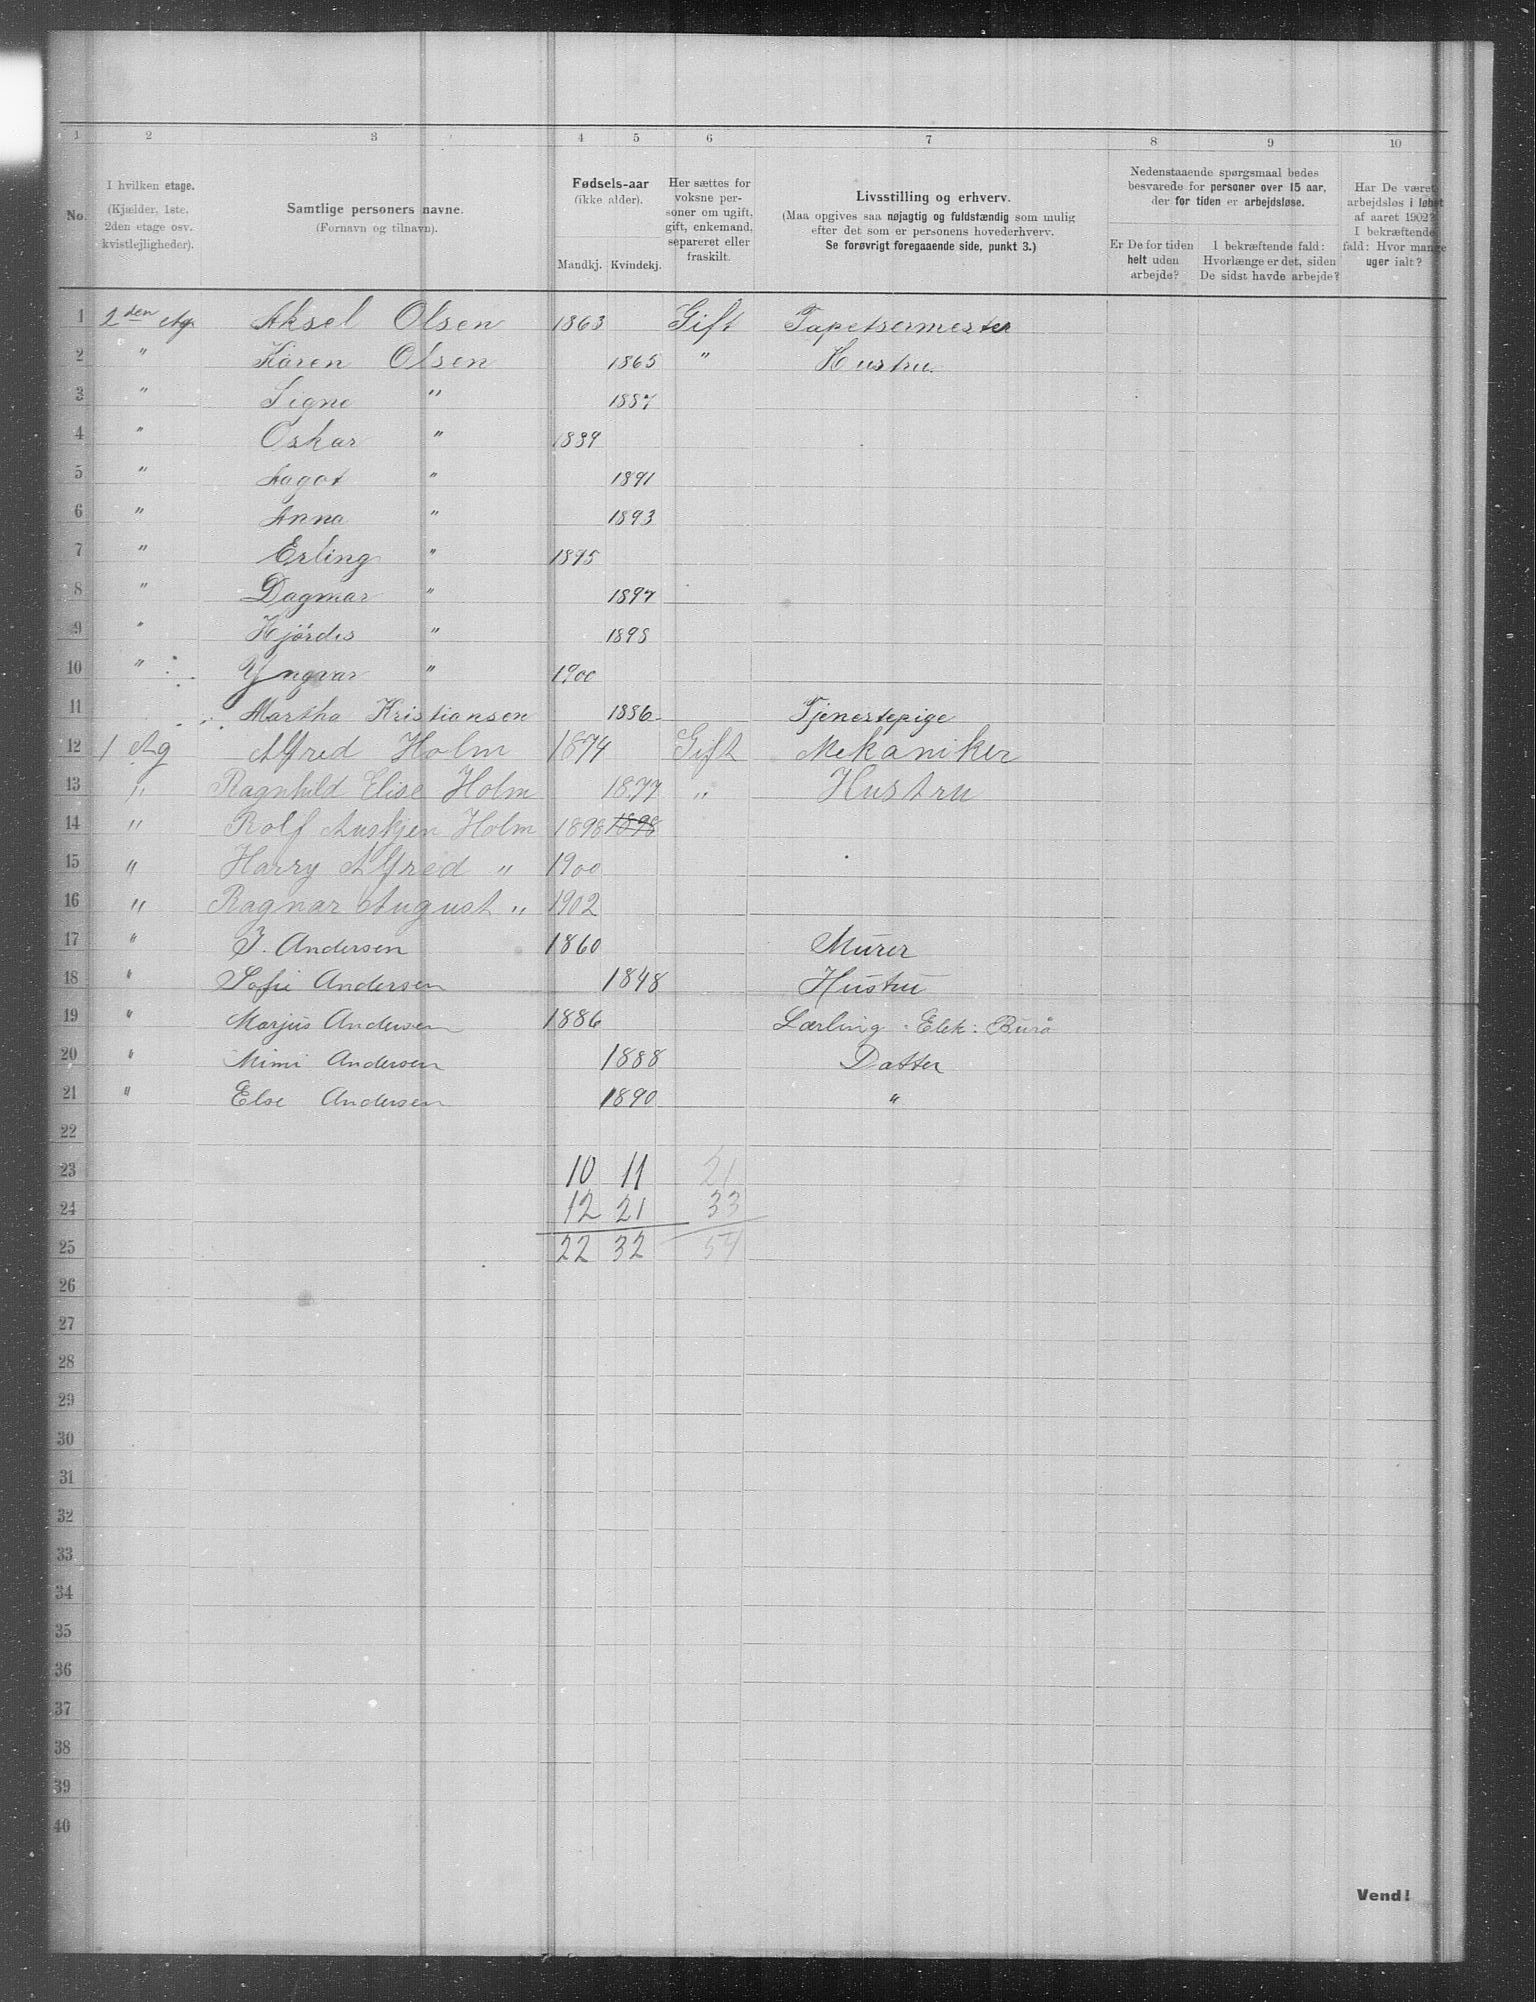 1 2 3 4 5 6 7 8 9 10
No. I hvilken etage. (Kjælder, 1ste, 2den etage osv. kvistlejligheder).
Samtlige personers navne. (Fornavn og tilnavn).
Fødsels-aar (ikke alder). Mandkj. Kvindekj.
Her sættes for voksne personer om ugift, gift, enkemand, separeret eller fraskilt.
Livsstilling og erhverv.
(Maa opgives saa nøjagtig og fuldstændig som mulig
efter det som er personens hovederhverv.
Se forøvrigt foregaaende side, punkt 3.)
Nedenstaaende spørgsmaal bedes
besvarede for personer over 15 aar,
der for tiden er arbejdsløse.
Er De for tiden helt uden arbejde?
I bekræftende fald: Hvorlænge er det, siden De sidst havde arbejde?
Har De været arbejdsløs i løbet af aaret 1902? I bekræftende fald: Hvor mange uger ialt?
1 2den Etg Aksel Olsen 1863 Gift Tapetsermester
2 " Karen Olsen 1865 " Hustru.
3 " Signe " 1887
4 " Oskar " 1889
5 " Aagot " 1891
6 " Anna " 1893
7 " Erling " 1895
8 " Dagmar " 1897
9 " Hjördis " 1898
10 " Yngvar " 1900
11 Martha Kristiansen 1886 Tjenestepige
12 1 Etg Alfred Holm 1874 Gift Mekaniker
13 " Ragnhild Elise Holm 1877 " Hustru
14 " Rolf Holm 1898 1898
15 " Harry Alfred " 1900
16 " Ragnar August " 1902
17 " J. Andersen 1860 Murer
18 " Sofie Andersen 1848 Hustru
19 " Marjus Andersen 1886 Lærling Elek: Burö
20 " Mimi Andersen 1888 Datter
21 " Else Andersen 1890 "
22
23 10 11 21
24 12 21 33
25 22 32 54
26
27
28
29
30
31
32
33
34
35
36
37
38
39
40
Vend!